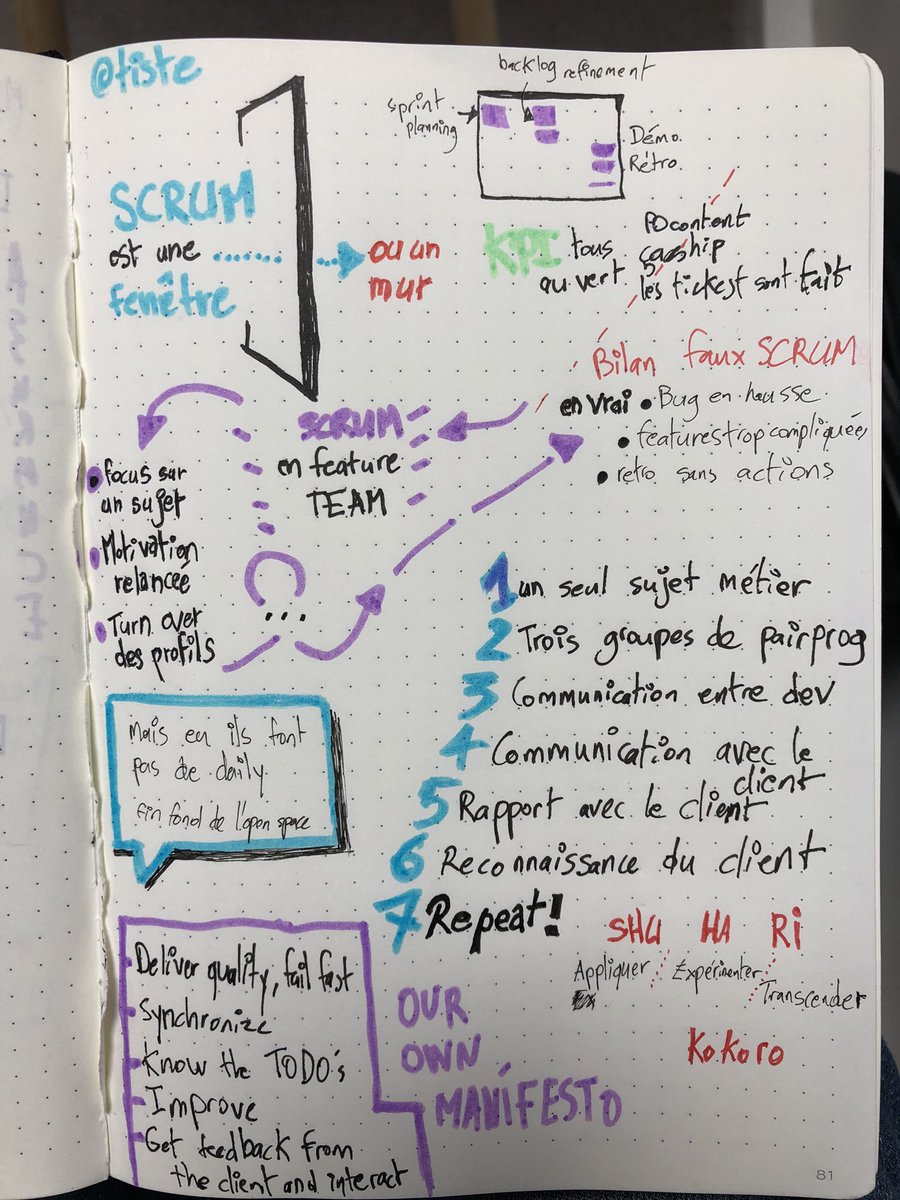 @tiste
backlog refinement
sprint
planning
Démo.
Rétro.
SCRUM
est une
fenêtre
ou un
mur
KPI tous
au vert
PO content
ça ship
les tickest sont fait
Bilan faux SCRUM
en vrai • Bug en hausse
• features trop compliquées
• retro sans actions
SCRUM
en feature
TEAM
• focus sur
un sujet
• Motivation
relancée
• Turn over
des profils
...
1 un seul sujet métier
2 Trois groupes de pairprog
3 Communication entre dev
4 Communication avec le
client
5 Rapport avec le client
6 Reconnaissance du client
7 Repeat!
Mais eu ils font
pas de daily
fin fond de l'open space
SHU HA RI
Appliquer
Expérimenter
Transcender
Kokoro
- Deliver quality, fail fast
- Synchronize
- Know the TODO's
- Improve
- Get feedback from
the client and interact
OUR
OWN
MANIFESTO
81